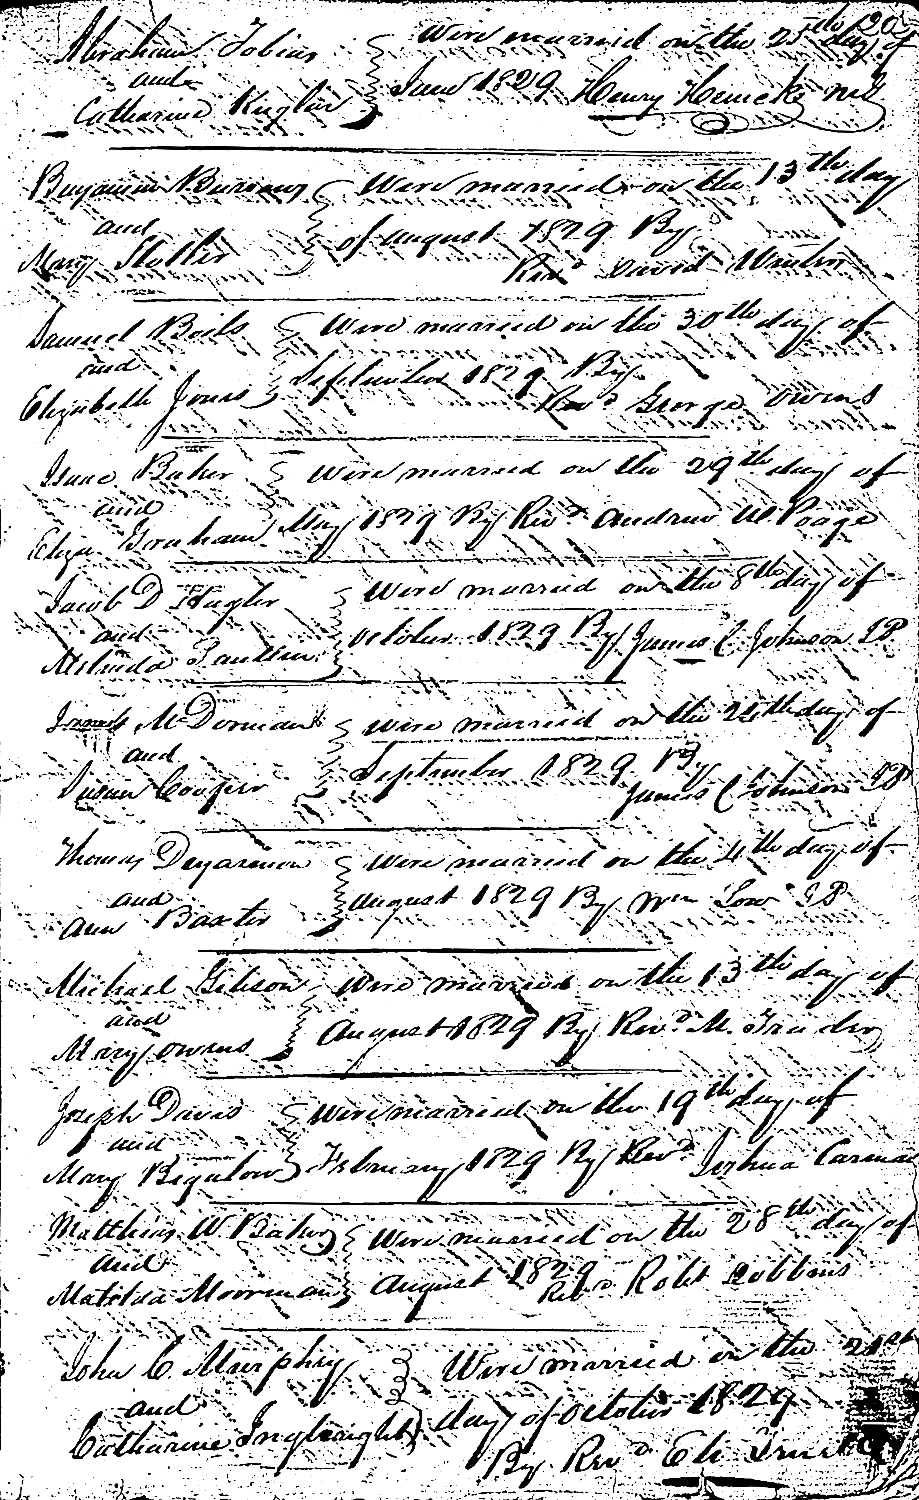 Abraham Tobias Were married on the 25th day of
and
Catharine Kuglin June 1829 Henry Heneck
Benjamin Burrows Were married on the 13th day
and of august 1829 By
Mary Stotler Revd David Winters
Samuel Boils Were married on the 30th day of
and September 1829 By
Elizabeth Jones Revd George Owens
Isaac Baker Were married on the 29th day of
and
Eliza Graham May 1829 By Revd Andrew W. Poage
Jacob D Were married on the 8th day of
and october 1829 By James C Johnson JP
Melinda
McDorman Were married on the 24th day of
and September 1829 By
Susan Cooper James C Johnson JP
Thomas Were married on the 4th day of
and august 1829 By Wm Low JP
Ann Baxter
Michael Gibson Were married on the 13th day of
and August 1829 By Revd M.
Mary owens
Joseph Davis Were married on the 19th day of
and
Mary Bigelow February 1829 By Revd Joshua Carman
Matthias W Baker Were married on the 28th day of
and August 1829
Matilda Moorman Revd Robt Dobbins
John C. Murphy Were married on the
and day of October 1829
Catharine By Revd Eli